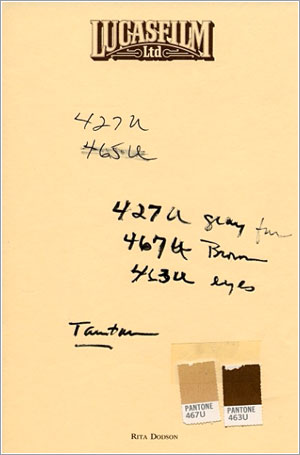 LUCASFILM
Ltd
427U
465U
427U gray fur
467U Brown
463U eyes
Tauntaun
PANTONE
467U
PANTONE
463U
RITA DODSON